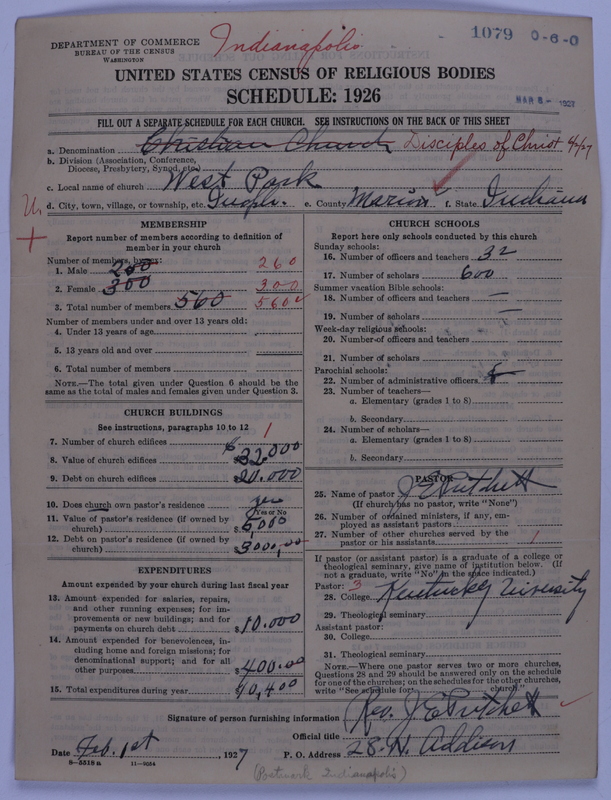 1079 0-6-0
Indianapolis
DEPARTMENT OF COMMERCE
BUREAU OF THE CENSUS
WASHINGTON
UNITED STATES CENSUS OF RELIGIOUS BODIES
SCHEDULE: 1926
MAR 8 - 1927
FILL OUT A SEPARATE SCHEDULE FOR EACH CHURCH. SEE INSTRUCTIONS ON THE BACK OF THIS SHEET
a. Denomination Christian Church Disciples of Christ 4/2/27
b. Division (Association, Conference,
Diocese, Presbytery, Synod, etc.)
c. Local name of church West Park
d. City, town, village, or township, etc. Indpls. e. County Marion f. State Indiana
MEMBERSHIP
Report number of members according to definition of
member in your church
Number of members, by sex:
1. Male 260 260
2. Female 300 300
3. Total number of members 560 560
Number of members under and over 13 years old:
4. Under 13 years of age
5. 13 years old and over
6. Total number of members
NOTE.—The total given under Question 6 should be the
same as the total of males and females given under Question 3.
CHURCH BUILDINGS
See instructions, paragraphs 10 to 12
7. Number of church edifices 1
8. Value of church edifices $32,000
9. Debt on church edifices $20,000
10. Does church own pastor's residence yes
Yes or No
11. Value of pastor's residence (if owned by
church) $6,000
12. Debt on pastor's residence (if owned by
church) $3000.00
EXPENDITURES
Amount expended by your church during last fiscal year
13. Amount expended for salaries, repairs,
and other running expenses; for im-
provements or new buildings; and for
payments on church debt $10.000
14. Amount expended for benevolences, in-
cluding home and foreign missions; for
denominational support; and for all
other purposes $400.00
15. Total expenditures during year $10,400
CHURCH SCHOOLS
Report here only schools conducted by this church
Sunday schools:
16. Number of officers and teachers 32
17. Number of scholars 600
Summer vacation Bible schools:
18. Number of officers and teachers —
19. Number of scholars —
Week-day religious schools:
20. Number of officers and teachers
21. Number of scholars
Parochial schools:
22. Number of administrative officers
23. Number of teachers—
a. Elementary (grades 1 to 8)
b. Secondary
24. Number of scholars—
a. Elementary (grades 1 to 8)
b. Secondary
PASTOR
25. Name of pastor J E Pritchett
(If church has no pastor, write "None")
26. Number of ordained ministers, if any, em-
ployed as assistant pastors
27. Number of other churches served by the
pastor or his assistants 1
If pastor (or assistant pastor) is a graduate of a college or
theological seminary, give name of institution below. (If
not a graduate, write "No" in the space indicated.)
Pastor: 3
28. College Kentucky University
29. Theological seminary
Assistant pastor:
30. College
31. Theological seminary
NOTE.—Where one pastor serves two or more churches,
Questions 28 and 29 should be answered only on the schedule
for one of the churches; on the schedules for the other churches,
write "See schedule for church."
Signature of person furnishing information Rev. J. E Pritchett
Official title
Date Feb. 1st, 1927 P. O. Address 28. N. Addison
8—5518 a 11—9054
(Postmark Indianapolis)